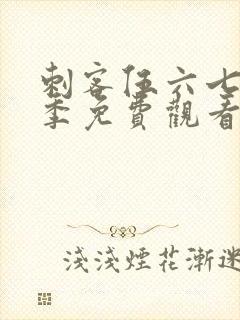 刺客伍六七
季免費觀看
淺淺煙花漸迷